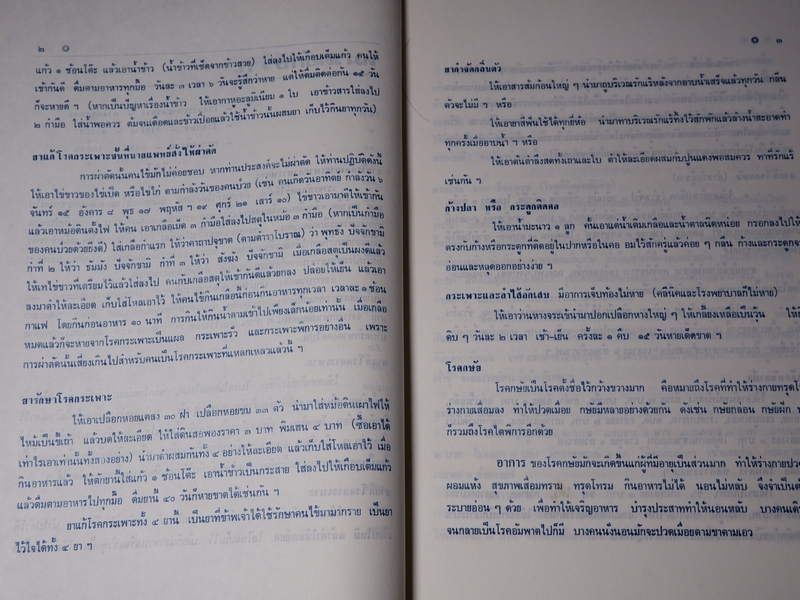 ๒ ๐
แก้ว ๑ ช้อนโต๊ะ แล้วเอาน้ำข้าว (น้ำข้าวที่เช็ดจากข้าวสวย) ใส่ลงไปให้เกือบเต็มแก้ว คนให้
เข้ากันดี ดื่มตามอาหารทุกมื้อ วันละ ๓ เวลา ๖ วันจะรู้สึกว่าหาย แต่ให้ดื่มติดต่อกัน ๑๕ วัน
ก็จะหายดี ฯ (หากเป็นปัญหาเรื่องน้ำข้าว ให้เอากาหูอะลูมิเนียม ๑ ใบ เอาข้าวสารใส่ลงไป
๒ กำมือ ใส่น้ำพอควร ต้มจนเดือดและข้าวเปื่อยแล้วใช้น้ำข้าวนั้นผสมยา เก็บไว้กินยาทุกวัน)
ยาแก้โรคกระเพาะขั้นที่นายแพทย์สั่งให้ผ่าตัด
การผ่าตัดนั้นคนไข้มักไม่ค่อยชอบ หากท่านประสงค์จะไม่ผ่าตัด ให้ท่านปฏิบัติดังนี้
ให้เอาไข่ขาวของไข่เป็ด หรือไข่ไก่ ตามกำลังวันของคนป่วย (เช่น คนเกิดวันอาทิตย์ กำลังวัน ๖
จันทร์ ๑๕ อังคาร ๘ พุธ ๑๗ พฤหัส ฯ ๑๙ ศุกร์ ๒๑ เสาร์ ๑๐) ไข่ขาวเอามาตีให้เข้ากัน
แล้วเอาหม้อดินตั้งไฟ ให้คน เอาเกลือเม็ด ๓ กำมือใส่ลงไปสตุในหม้อ ๓ กำมือ (หากเป็นกำมือ
ของคนป่วยด้วยยิ่งดี) ใส่เกลือกำแรก ให้ว่าคาถาปจุขาด (ตามตำราโบราณ) ว่า พุทธัง ปัจจักขามิ
กำที่ ๒ ให้ว่า ธัมมัง ปัจจักขามิ กำที่ ๓ ให้ว่า สังฆัง ปัจจักขามิ เมื่อเกลือสตุเป็นผงดีแล้ว
ให้เทไข่ขาวที่เตรียมไว้แล้วใส่ลงไป คนกับเกลือสตุให้เข้ากันดีแล้วยกลง ปล่อยให้เย็น แล้วเอา
ลงมาตำให้ละเอียด เก็บใส่โหลเอาไว้ ให้คนไข้กินเกลือนี้ก่อนกินอาหารทุกเวลา เวลาละ ๑ ช้อน
กาแฟ โดยกินก่อนอาหาร ๑๐ นาที การกินให้กินน้ำตามเข้าไปเพียงเล็กน้อยเท่านั้น เมื่อเกลือ
หมดแล้วก็จะหายจากโรคกระเพาะเป็นแผล กระเพาะรั่ว และกระเพาะพิการอย่างอื่น เพราะ
การผ่าตัดนั้นเสี่ยงเกินไปสำหรับคนเป็นโรคกระเพาะที่แหลกเหลวแล้วนี้ ฯ
ยารักษาโรคกระเพาะ
ให้เอาเปลือกหอยแคลง ๓๐ ฝา เปลือกหอยขม ๓๓ ตัว นำมาใส่หม้อดินเผาไฟให้
ไหม้เป็นขี้เถ้า แล้วบดให้ละเอียด ให้ใส่ดินสอพองราคา ๓ บาท พิมเสน ๔ บาท (ซื้อเอาได้
เท่าไรเอาเท่านั้นทั้งสองอย่าง) นำมาตำผสมกันทั้ง ๔ อย่างให้ละเอียด แล้วเก็บใส่โหลเอาไว้ เมื่อ
กินอาหารแล้ว ให้ตักยานี้ใส่แก้ว ๑ ช้อนโต๊ะ เอาน้ำข้าวเป็นกระสาย ใส่ลงไปให้เกือบเต็มแก้ว
แล้วดื่มตามอาหารไปทุกมื้อ ดื่มยานี้ ๔๐ วันก็หายขาดได้เช่นกัน ฯ
ยาแก้โรคกระเพาะทั้ง ๔ ยานี้ เป็นยาที่ข้าพเจ้าได้ใช้รักษาคนไข้มามากราย เป็นยา
ไว้ใจได้ทั้ง ๔ ยา ฯ
๑ ๓
ยากำจัดกลิ่นตัว
ให้เอาสารส้มก้อนใหญ่ ๆ นำมาถูบริเวณรักแร้หลังจากอาบน้ำเสร็จแล้วทุกวัน กลิ่น
ตัวจะไม่มี ฯ หรือ
ให้เอายาสีฟันใช้ได้ทุกยี่ห้อ นำมาทาบริเวณรักแร้ทิ้งไว้สักพักแล้วล้างน้ำสะอาดทำ
ทุกครั้งเมื่ออาบน้ำ ฯ หรือ
ให้เอาต้นตำลึงสดทั้งเถาและใบ ตำให้ละเอียดผสมกับปูนแดงพอสมควร ทาที่รักแร้
เช่นกัน ฯ
ก้างปลา หรือ กระดูกติดคอ
ให้เอาน้ำมะนาว ๑ ลูก คั้นเอาแต่น้ำเติมเกลือและน้ำตาลนิดหน่อย กรอกลงไปให้
ตรงกับก้างหรือกระดูกที่ติดอยู่ในปากหรือในคอ อมไว้สักครู่แล้วค่อย ๆ กลืน ก้างและกระดูกจะ
อ่อนและหลุดออกอย่างง่าย ฯ
กระเพาะและลำไส้อักเสบ มีอาการเจ็บท้องไม่หาย (คลีนิคและโรงพยาบาลก็ไม่หาย)
ให้เอาว่านหางจระเข้นำมาปอกเปลือกหางใหญ่ ๆ ให้เกลี้ยงเหลือเป็นวุ้น ให้
ดิบ ๆ วันละ ๒ เวลา เช้า–เย็น ครั้งละ ๑ คืบ ๑๕ วันหายเด็ดขาด ฯ
โรคกษัย
โรคกษัยเป็นโรคตั้งชื่อไว้กว้างขวางมาก คือหมายถึงโรคที่ทำให้ร่างกายทรุดโ
ร่างกายเสื่อมลง ทำให้ปวดเมื่อย กษัยมีหลายอย่างด้วยกัน ดังเช่น กษัยกล่อน กษัยฝัก
ก็รวมถึงโรคไตพิการอีกด้วย
อาการ ของโรคกษัยมักจะเกิดขึ้นแก่ผู้ที่มีอายุเป็นส่วนมาก ทำให้ร่างกายปวด
ผอมแห้ง สุขภาพเสื่อมทราม ทรุดโทรม กินอาหารไม่ได้ นอนไม่หลับ จึงจำเป็นต้
ระบายอ่อน ๆ ด้วย เพื่อทำให้เจริญอาหาร บำรุงประสาททำให้นอนหลับ บางคนเดิ
จนกลายเป็นโรคอัมพาตไปก็มี บางคนนั่งนอนมักจะปวดเมื่อยตามขาตามเอว